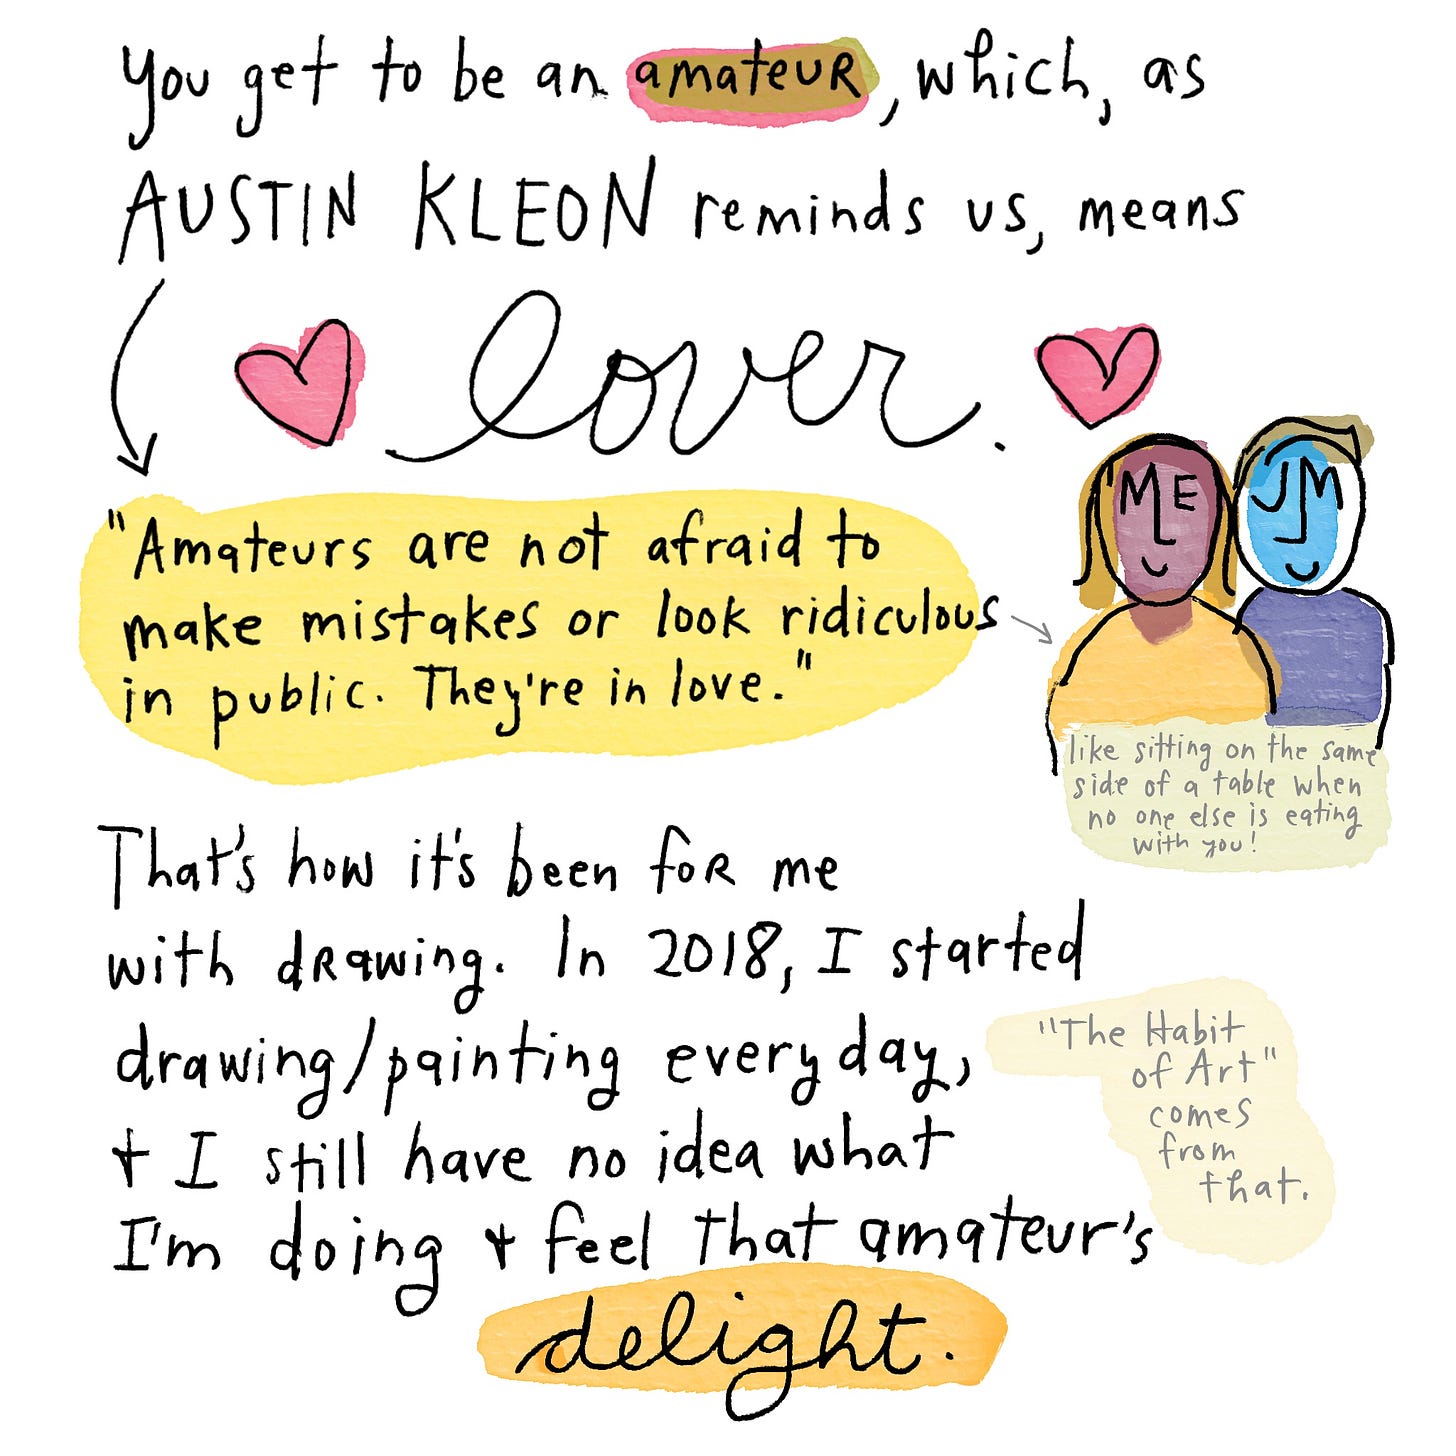 You get to be an amateur, which, as
AUSTIN KLEON reminds us, means
lover.
"Amateurs are not afraid to
make mistakes or look ridiculous
in public. They're in love."
ME
JM
like sitting on the same
side of a table when
no one else is eating
with you!
That's how it's been for me
with drawing. In 2018, I started
drawing/painting every day,
"The Habit
of Art"
comes
from
that.
+ I still have no idea what
I'm doing + feel that amateur's
delight.